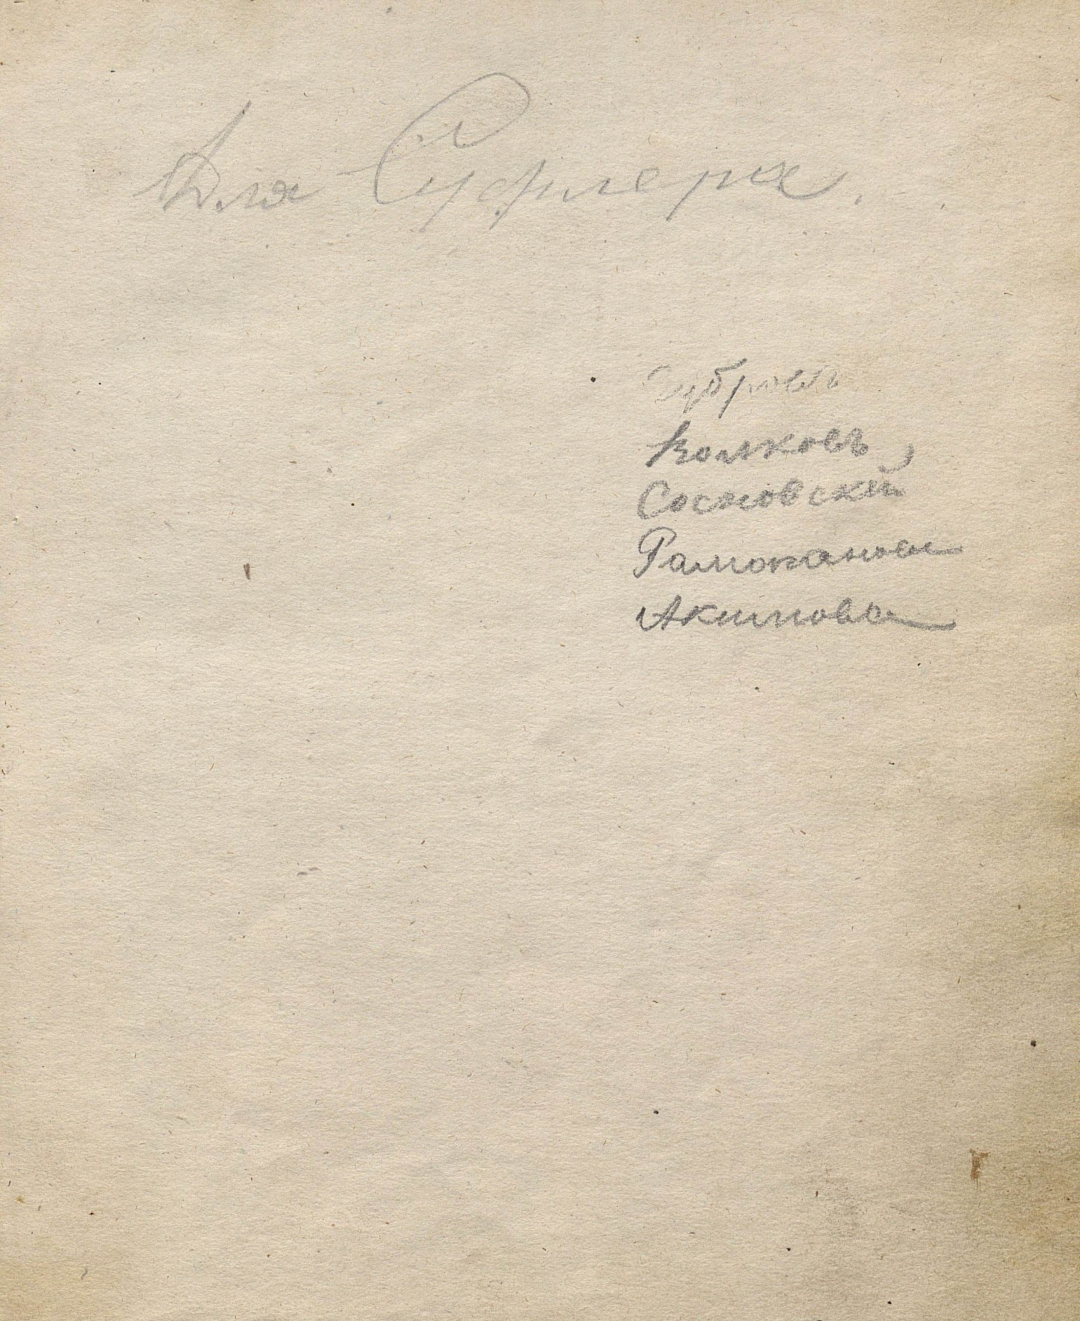 Для Суфлера.
Дубровъ
Волковъ
Сосновскій
Рамоканова
Акимова